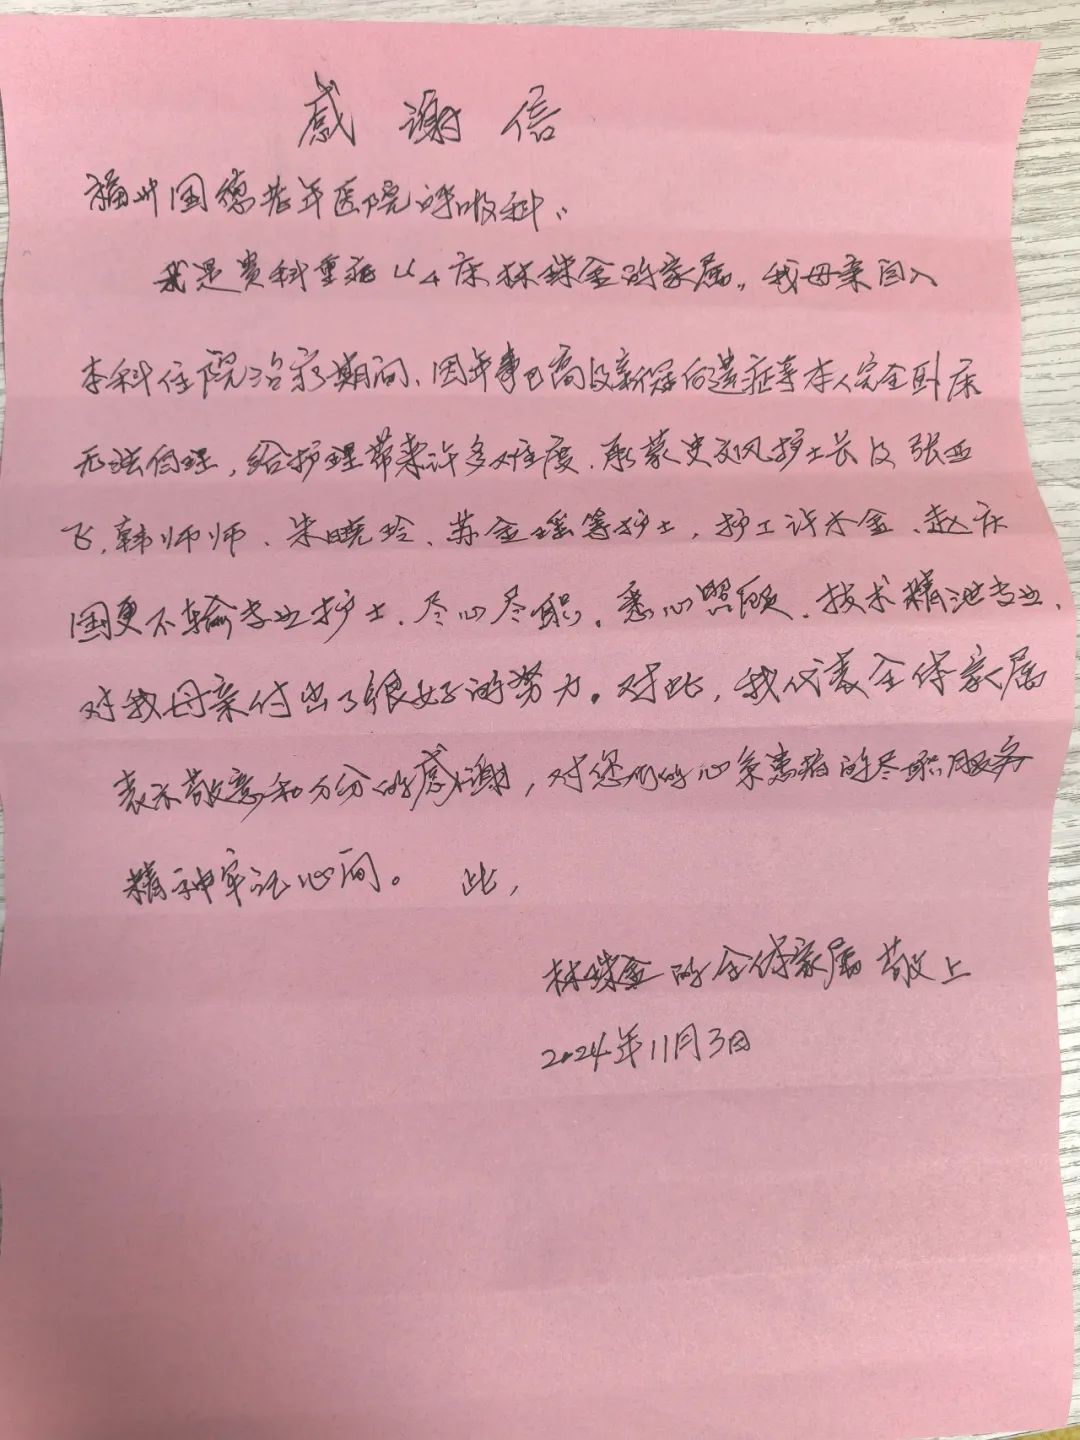 感谢信
福州国德老年医院呼吸科：
我是贵科重症 4床林珠金的家属。我母亲自入
本科住院治疗期间、因年事已高及新冠后遗症等本人完全卧床
无法自理，给护理带来许多难度、承蒙史凤护士长及张亚
飞、韩师师、朱晓玲、苏金瑶等护士，护工许木金、赵庆
国更不输专业护士、尽心尽职、悉心照顾、技术精湛专业、
对我母亲付出了很好的努力。对此，我代表全体家属
表示敬意和万分的感谢，对您们的心系患者的尽职服务
精神牢记心间。 此，
林珠金的全体家属 敬上
2024年11月3日